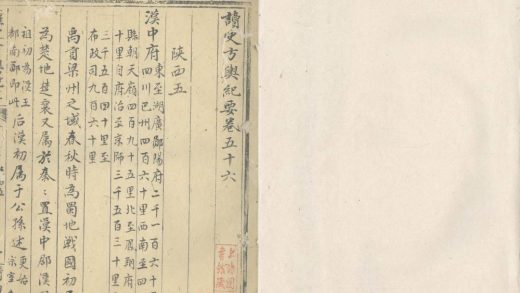 讀史方輿紀要卷五十六
陝西五
漢中府
東至湖廣鄖陽府二千一百六十
四川巴州四百六十里西南至四
縣朝天嶺四百九十五里北至鳳翔府
十里自府治至京師三千五百三十里
三千五百四十里至
布政司九百六十里
禹貢梁州之域春秋時為蜀地戰國初
為楚地楚衰又屬於秦秦置漢中郡漢
祖初為漢王
都南鄭即此
后漢初屬于公孫述
更始